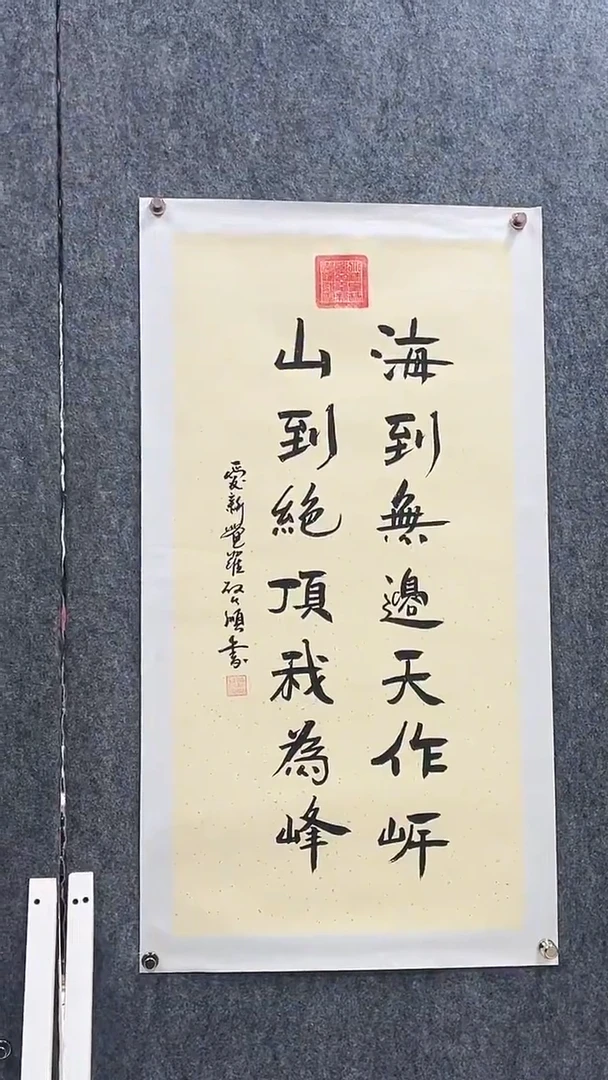 海到無邊天作岸
山到絕頂我為峰
愛新覺羅書